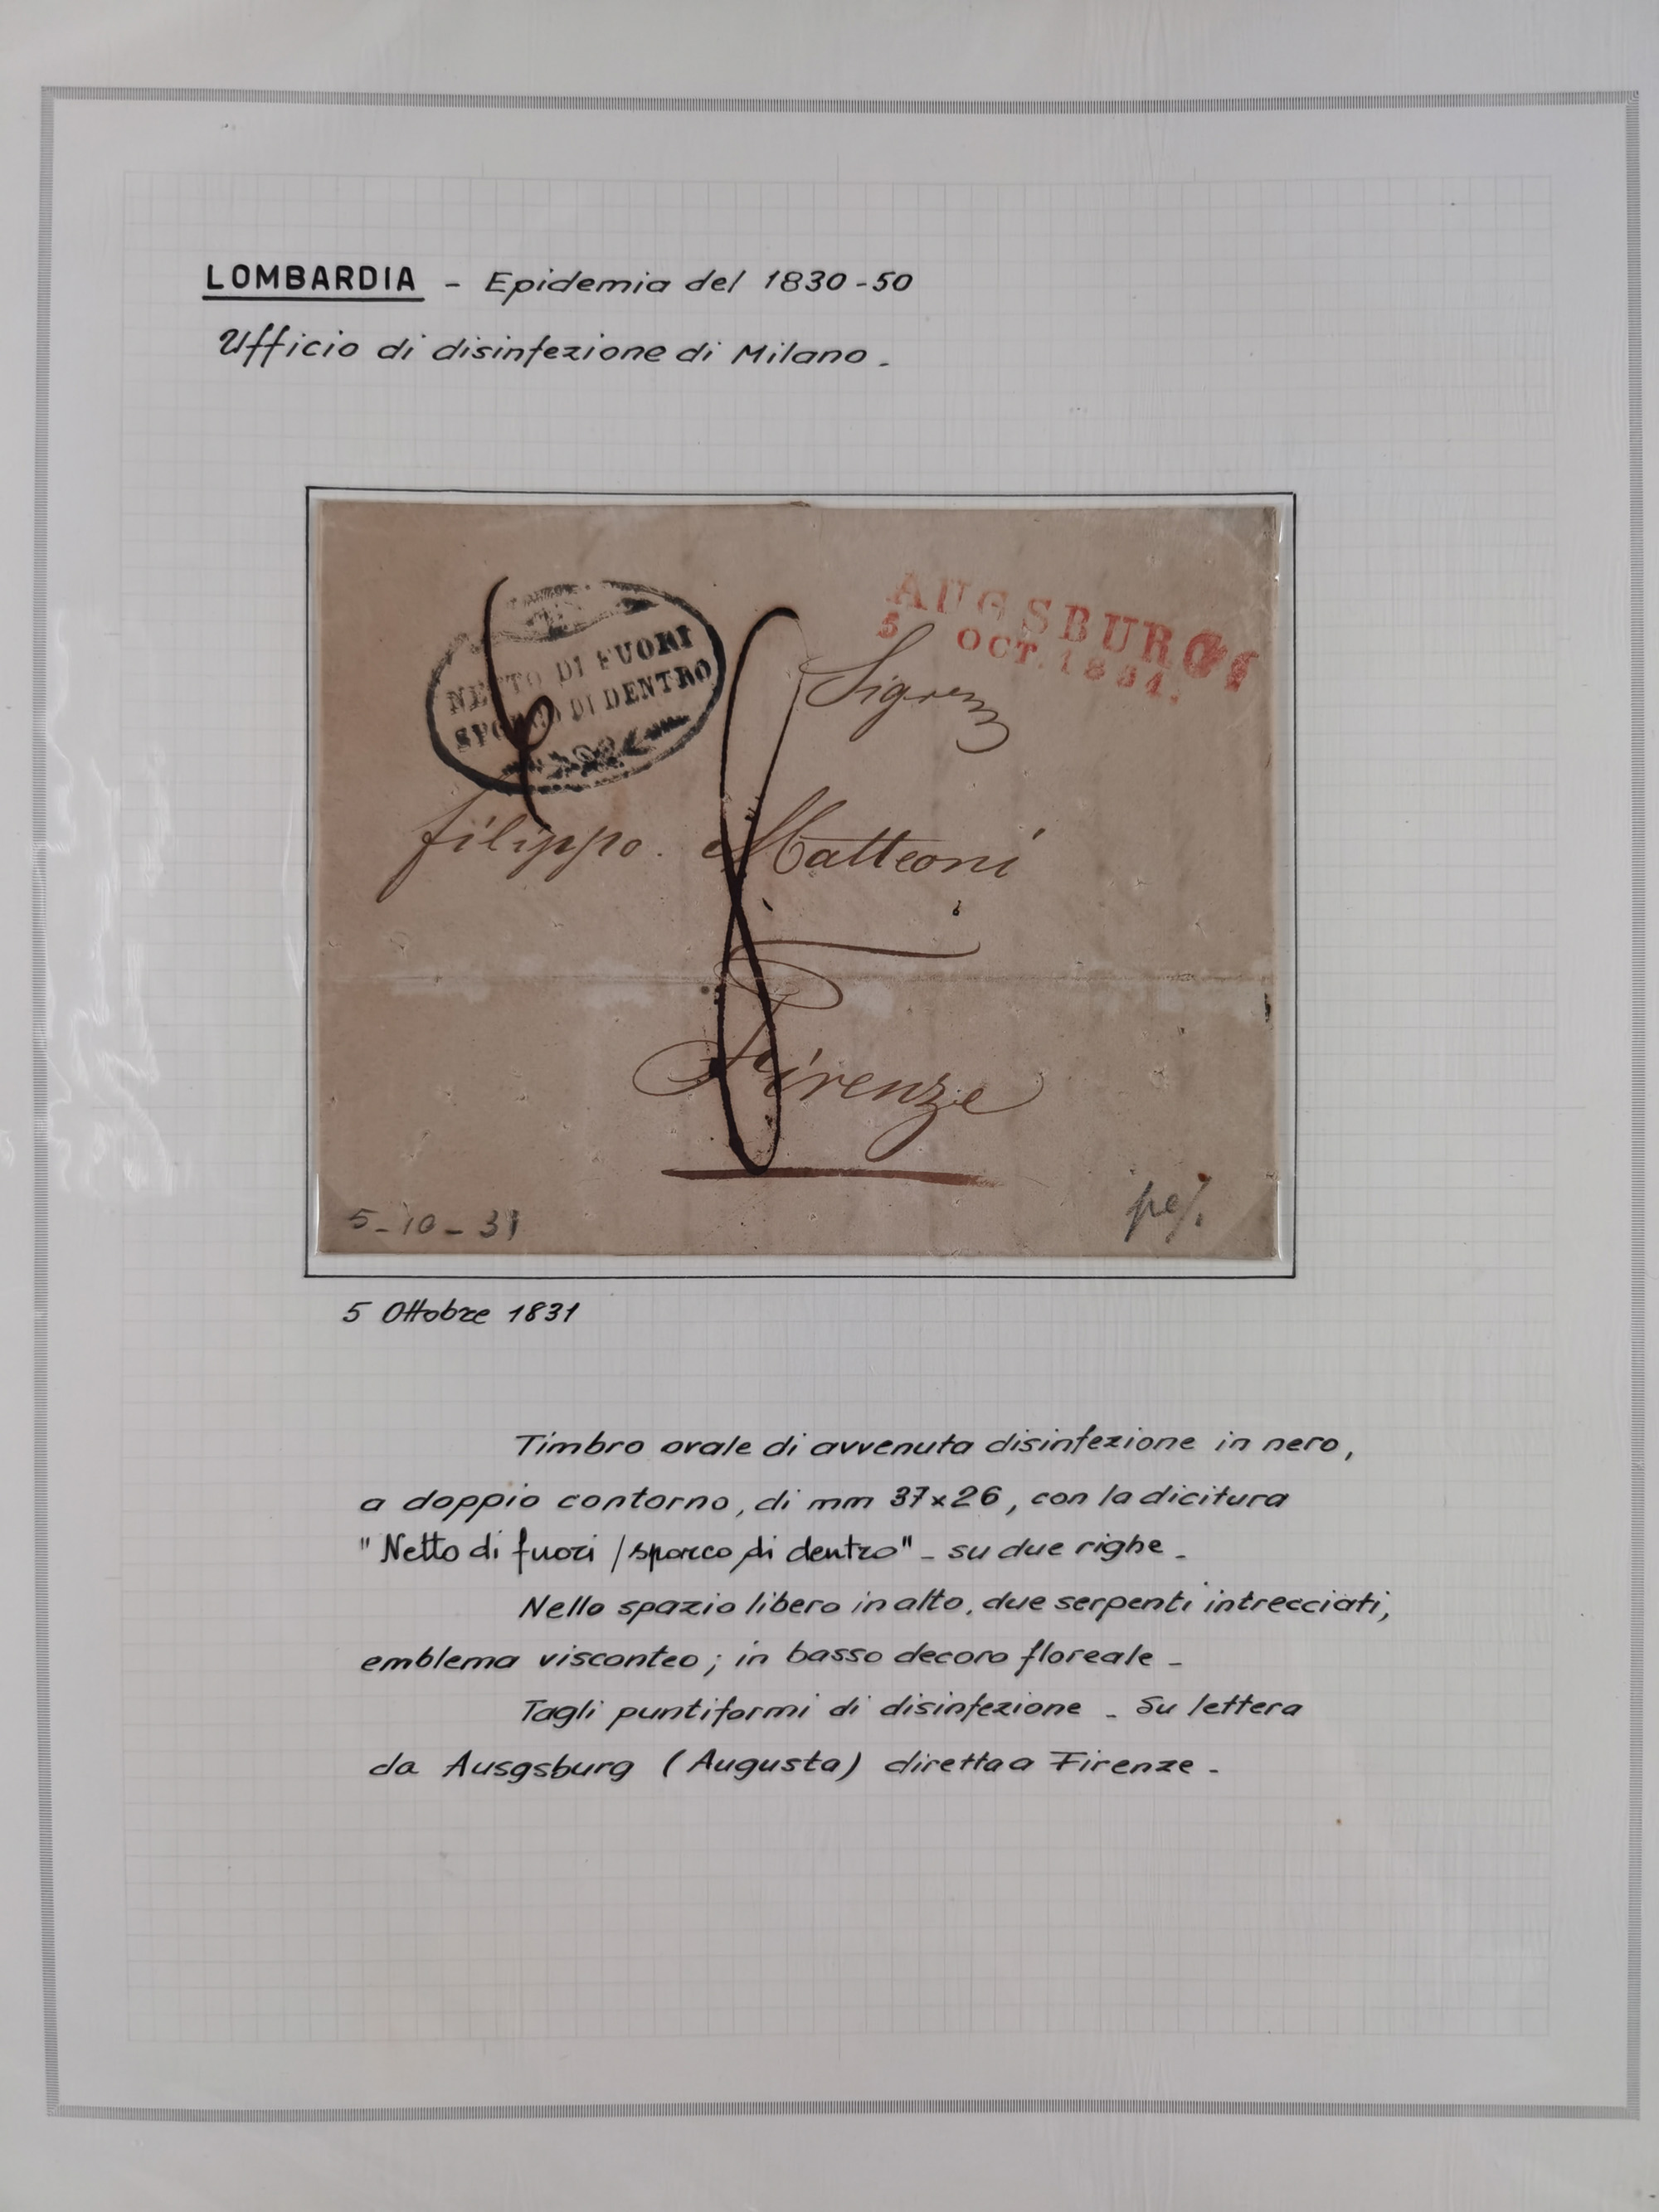 LOMBARDIA - Epidemia del 1830-50
Ufficio di disinfezione di Milano.
NETTO DI FUORI
SPORCO DI DENTRO
AUGSBURG
5 OCT. 1831.
Filippo. Matteoni
Firenze
5-10-31
5 Ottobre 1831
Timbro ovale di avvenuta disinfezione in nero,
a doppio contorno, di mm 37x26, con la dicitura
"Netto di fuori / sporco di dentro" - su due righe -
Nello spazio libero in alto, due serpenti intrecciati,
emblema visconteo; in basso decoro floreale -
Tagli puntiformi di disinfezione - Su lettera
da Ausgsburg (Augusta) diretta a Firenze -